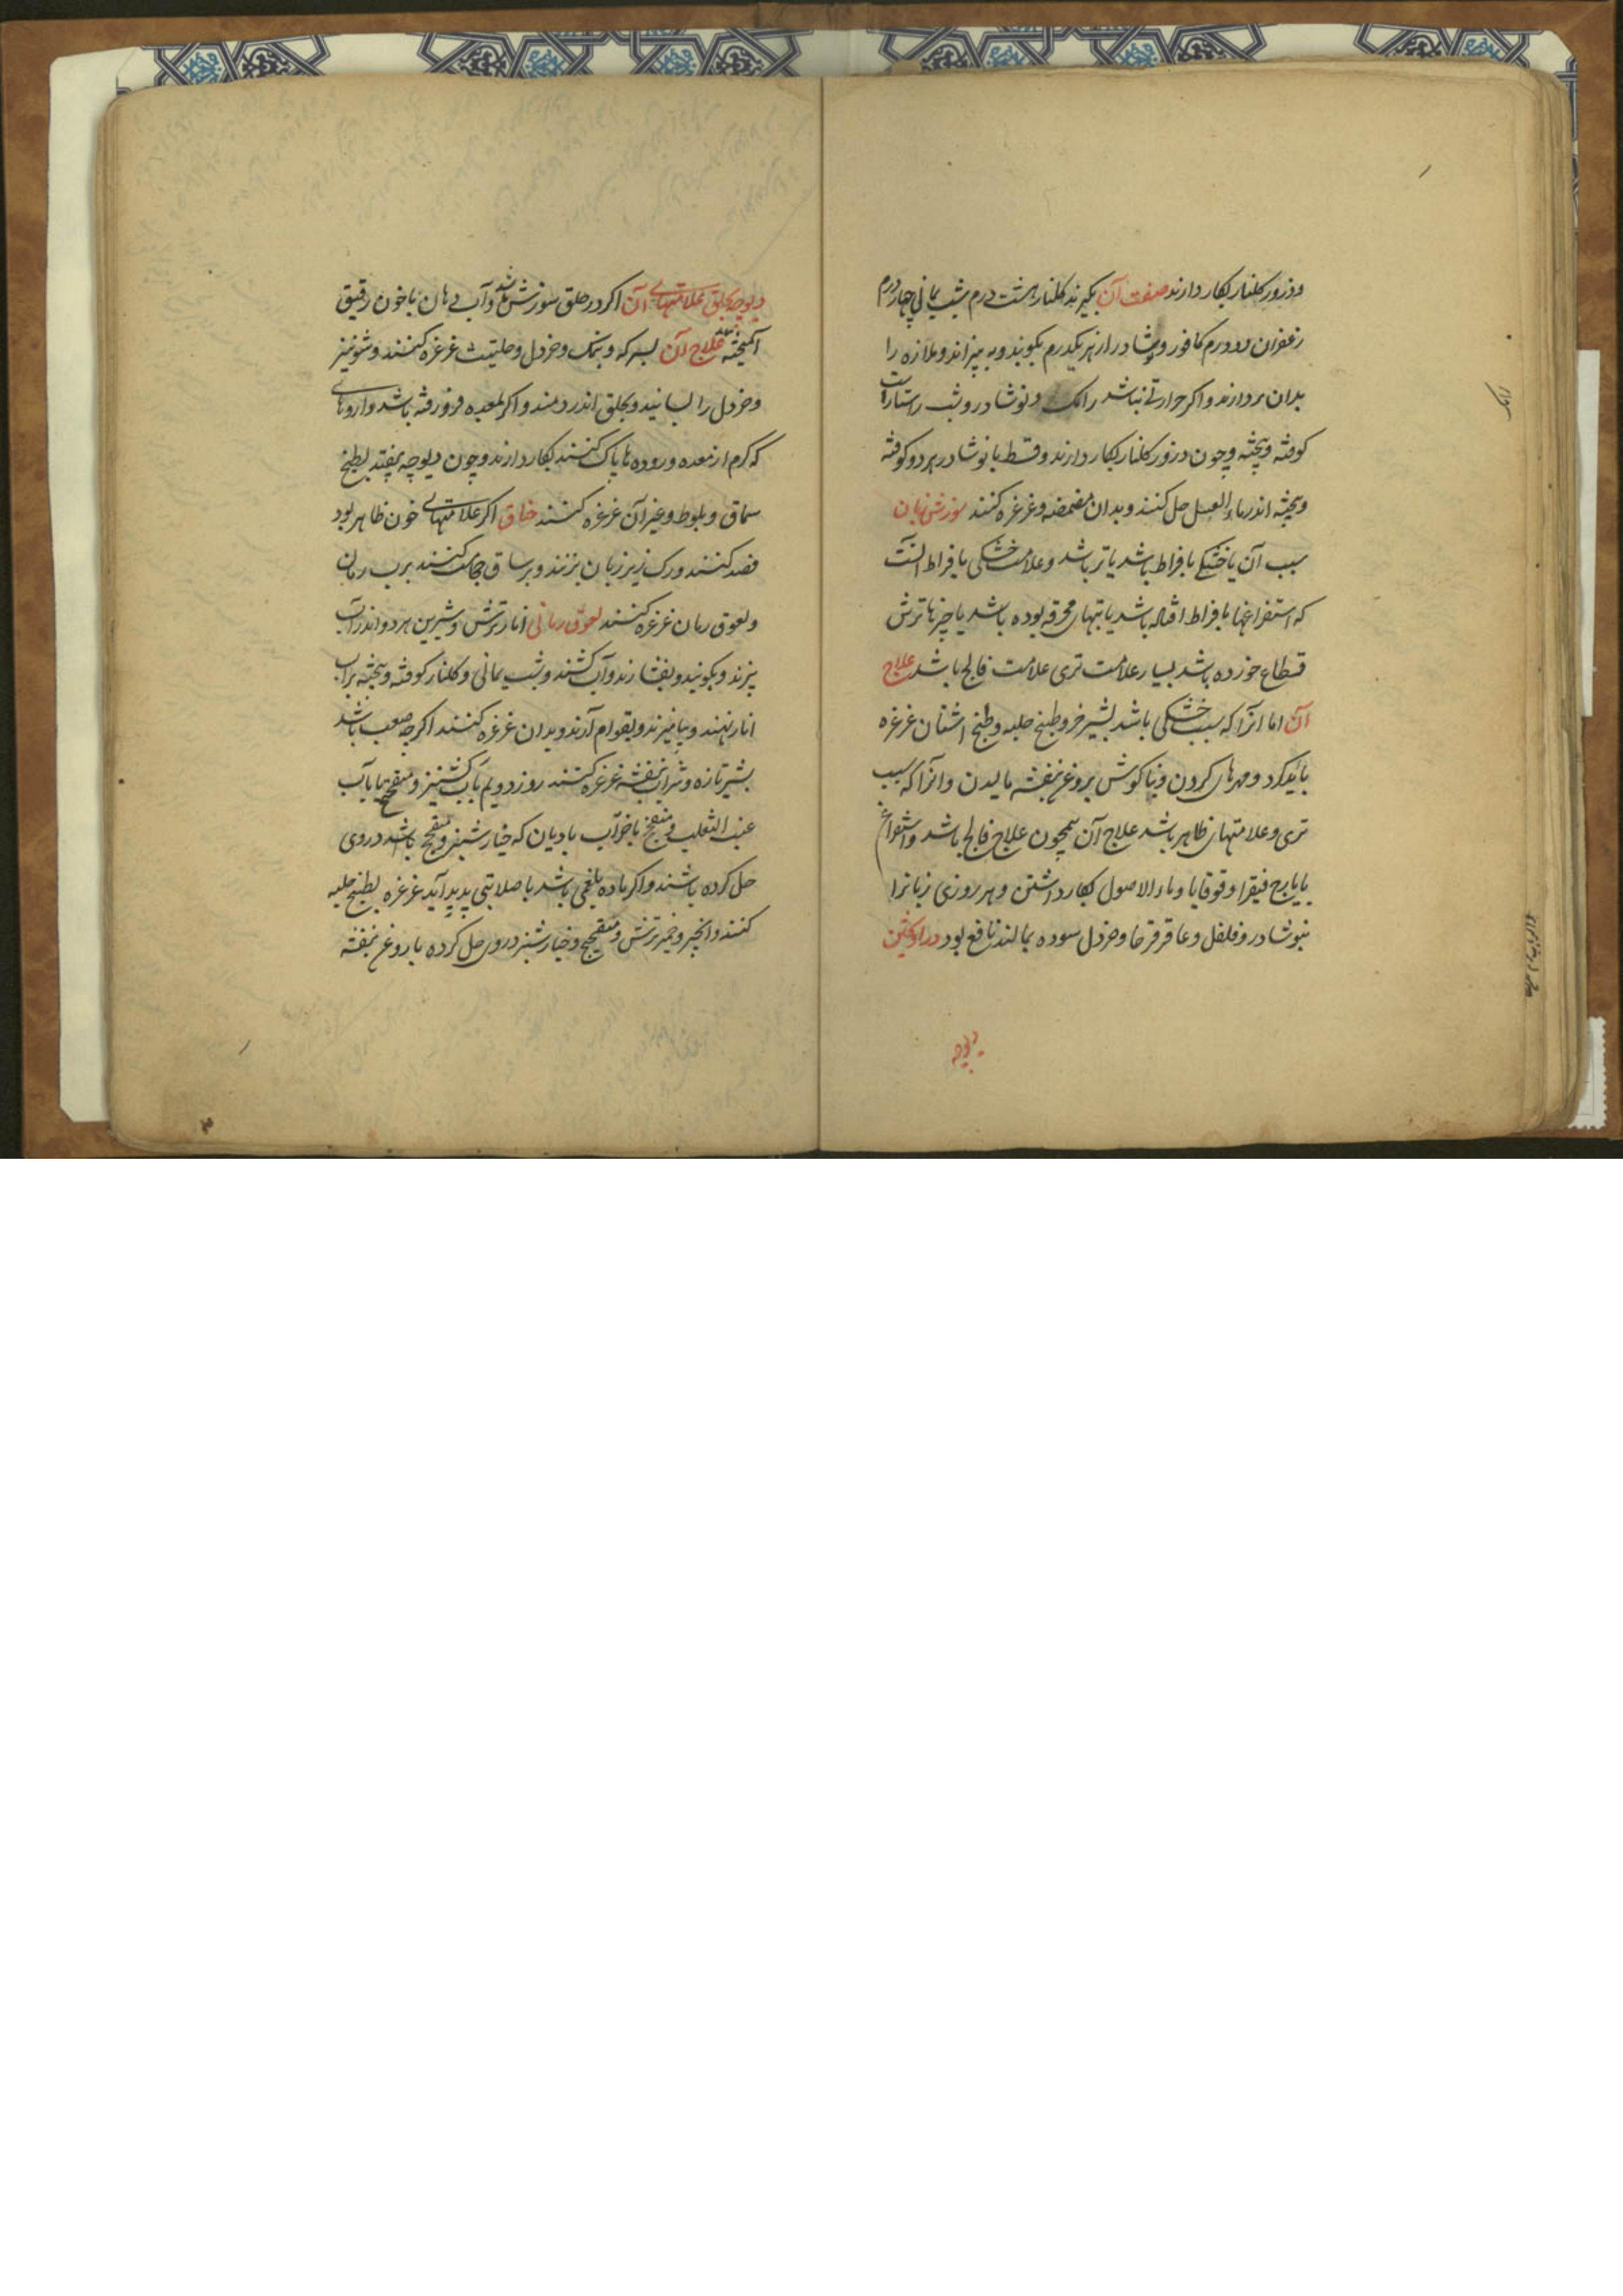 وذرور کلنار بکار دارند صفت آن بکیرند کلنار هشت درم شب یمانی چهار درم
زعفران دو درم کافور و نوشادر از هر یکدرم بکوبند و به بیزاند و ملازه را
بدان بردارند و اکر حرارتی نباشد رامک و نوشادر و شب راستاراست
کوفته و بیخته و چون ذرور کلنار بکار دارند و قسط با نوشادر هر دو کوفته
و بیخته اندر ماء العسل حل کنند و بدان مضمضه و غرغره کنند سوزش زبان
سبب آن یا خشکی بافراط باشد یا تر باشد و علامت خشکی بافراط آنست
که استفراغها بافراط افتاده باشد یا تبهای محرقه بوده باشد یا چیزها ترش
قطاع خورده باشد بسیار علامت تری علامت فالج باشد علاج
آن اما انرا که سبب خشکی باشد بشیر خر و طبیخ حلبه و طبیخ اشنان غرغره
باید کرد و مهرهای کردن و بناکوش بروغن بنفشه مالیدن و انرا که سبب
تری و علامتهای ظاهر باشد علاج آن همچون علاج فالج باشد و استفراغ
بایارج فیقرا و قوقایا و ماء الاصول بکار داشتن و هر روزی زبانرا
بنوشادر و فلفل و عاقرقرحا و خردل سوده بمالند نافع بود دراویختن
دیوچه
دیوچه بحلق علامتهای آن اکر در حلق سوزش باشد و آب دهان با خون رقیق
آمیخته باشد علاج آن بسرکه و نمک و خردل و حلتیت غرغره کنند و شونیز
و خردل را بسایند و بحلق اندر دمند و اکر بمعده فرو رفته باشد داروهای
که کرم از معده و رودها پاک کنند بکار دارند و چون دیوچه بیفتد بطبیخ
سماق و بلوط و غیر آن غرغره کنند خناق اکر علامتهای خون ظاهر بود
فصد کنند و رک زیر زبان بزنند و بر ساق حجامت کنند برب رمان
و لعوق رمان غرغره کنند لعوق رمانی انار ترش و شیرین هر دو اندر آب
بپزند و بکوبند و بفشارند و آب کشند و شب یمانی و کلنار کوفته و بیخته بر آب
انار نهند و بیامیزند و بقوام آرند و بدان غرغره کنند اکر چه صعب باشد
بشیر تازه و شراب بنفشه غرغره کنند روز دویم بآب کشنیز و میفختج یا بآب
عنب الثعلب و میفختج یا خود آب بادیان که خیارشنبر و میفختج باشد در وی
حل کرده باشند و اکر ماده بلغمی باشد یا صلابتی پدید آید غرغره بطبیخ حلبه
کنند و انجیر و خمیر ترش و میفختج و خیارشنبر در وی حل کرده با روغن بنفشه